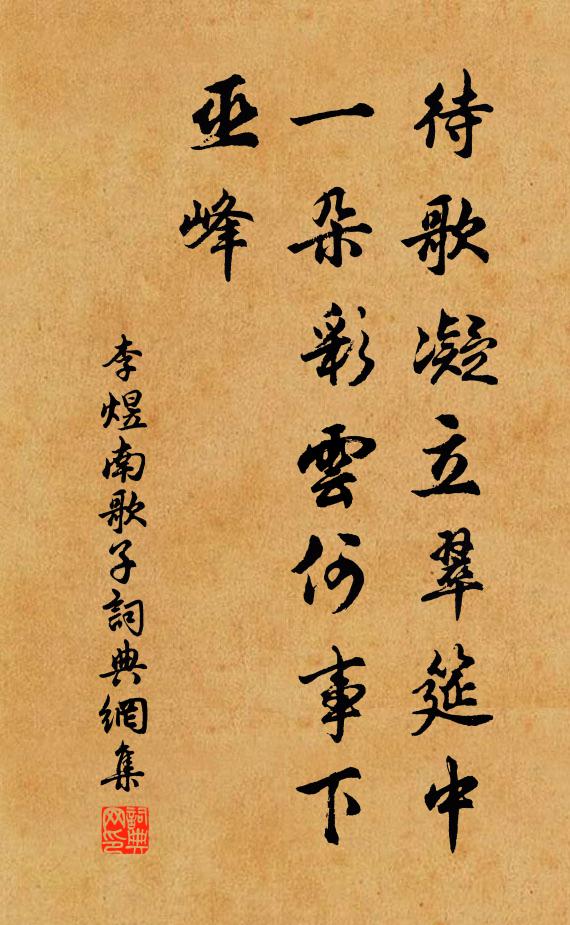 待歌凝立翠筵中
一朵彩雲何事下
巫峰
李煜南歌子詞典網集
詞典
网印